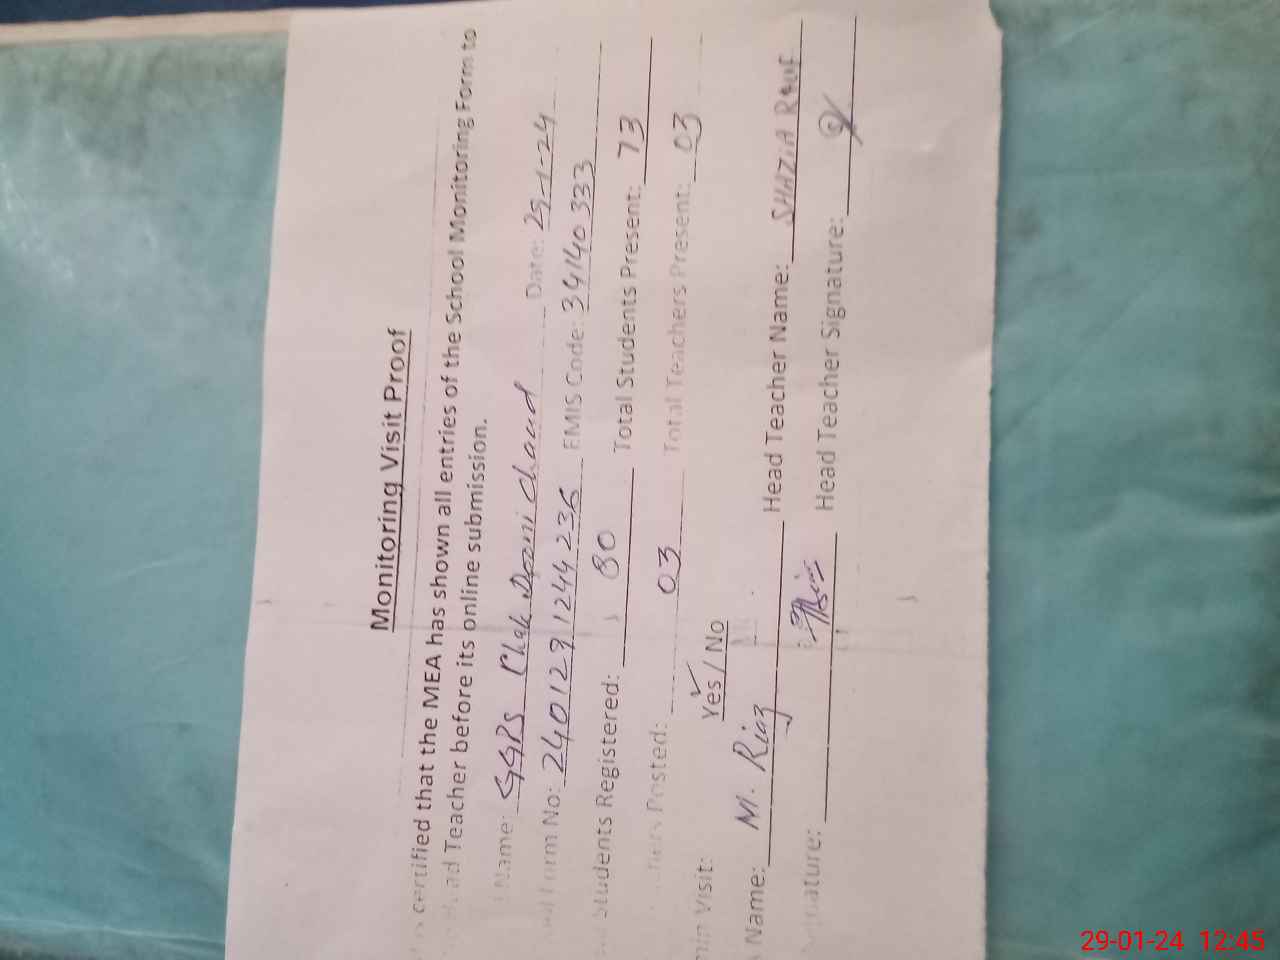 Monitoring Visit Proof
certified that the MEA has shown all entries of the School Monitoring Form to
Head Teacher before its online submission.
Name: GGPS Chak Deoni Chand Date: 29-1-24
Form No: 2401291244236 EMIS Code: 34140333
Students Registered: 80 Total Students Present: 73
Posted: 03 Total Teachers Present: 03
Visit: Yes / No
Name: M. Riaz Head Teacher Name: SHAZIA ROUF
Head Teacher Signature:
29-01-24 12:45